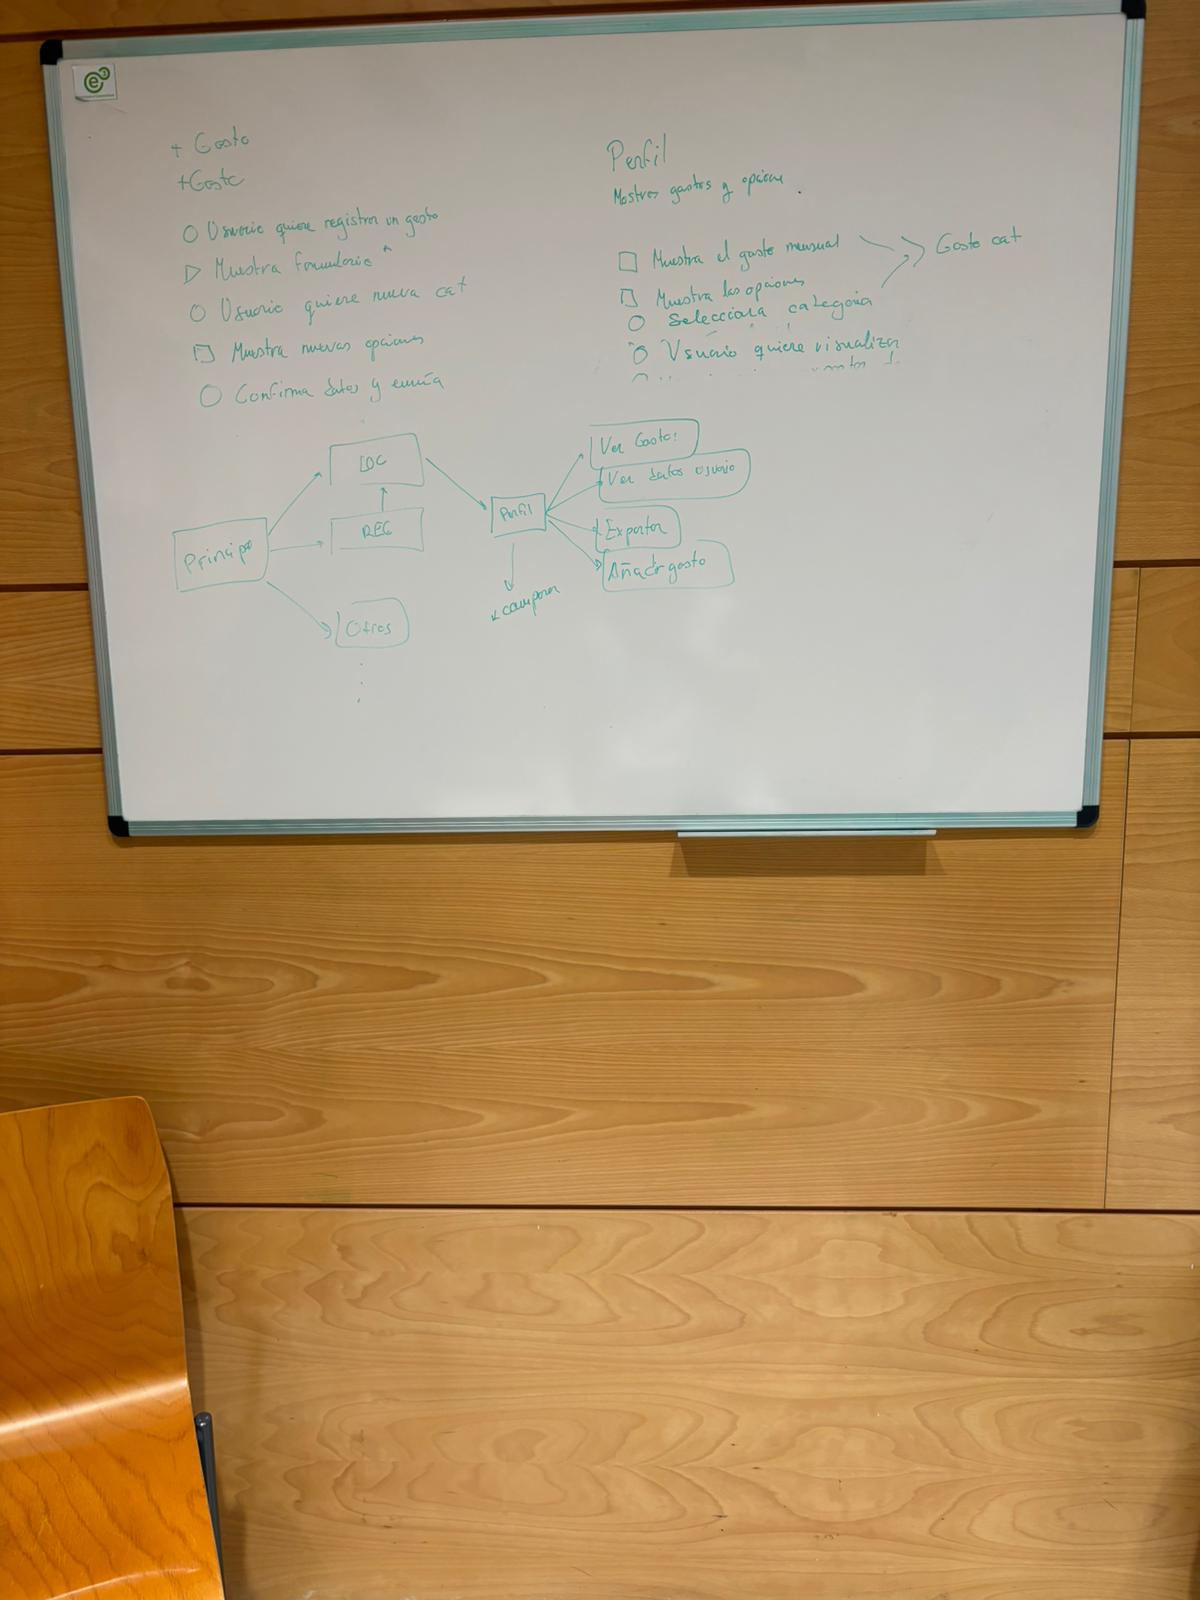 + Gasto
+Gasto
Usuario quiere registrar un gasto
Muestra formulario
Usuario quiere nueva cat
Muestra nuevas opciones
Confirma datos y envía
Perfil
Mostrar gastos y opcione
Muestra el gasto mensual
Muestra las opciones
Selecciona categoria
Usuario quiere visualizar
Gasto cat
Principo
LOG
REG
Otros
Perfil
comparar
Ver Gasto
Ver datos usuario
Exportar
Añadir gasto